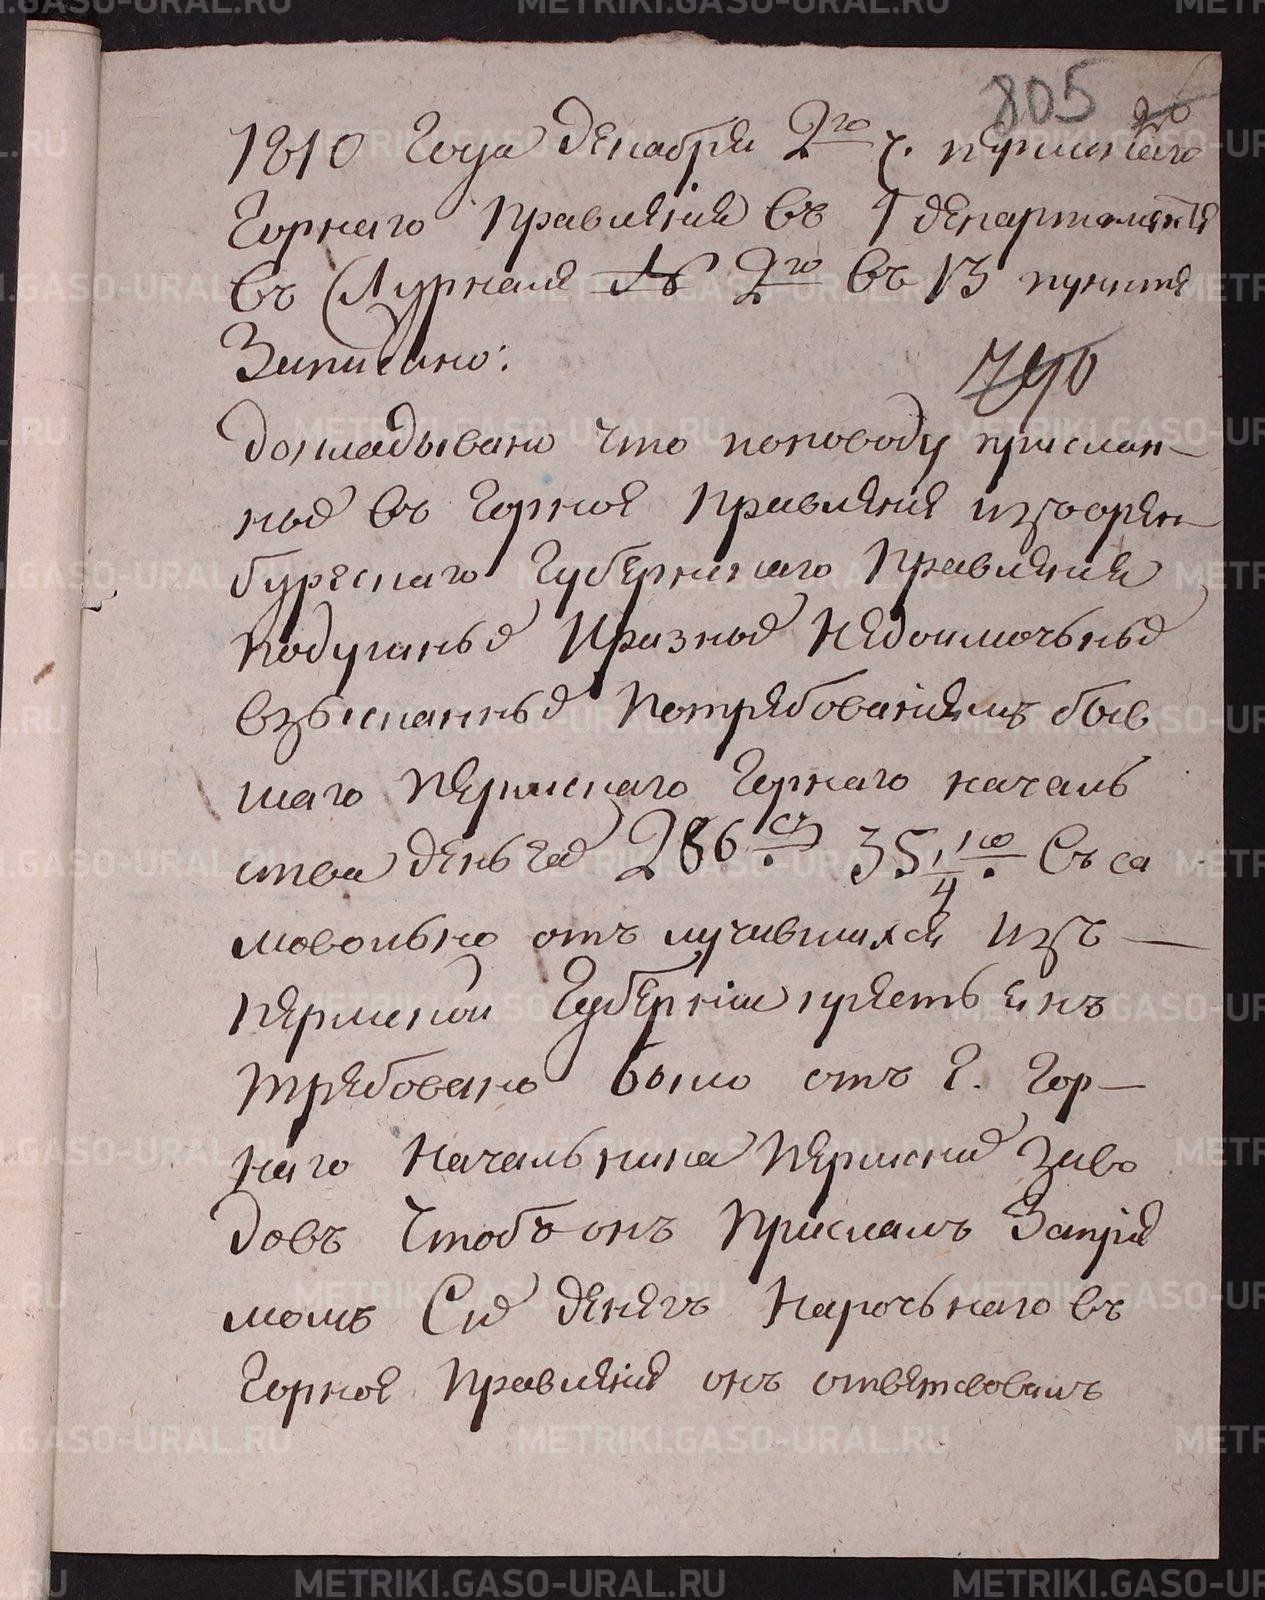 805
20
1810 Года декабря 2го ч. пермскаго
Горнаго Правления въ 1 департаменте
въ Журнале № 2го въ 13 пункте
Записано:
790
докладывано что поповоду прислан-
ные въ Горное Правление изъорен
бургскаго Губернскаго Правления
Подушные Иразные Недоимочьные
взысканные Потребованиемъ быв
шаго Пермскаго Горнаго началь
ства деньги 286 35 1/4 Съ са
мовольно отъ лучившихся Изъ
Пермской Губернии крестьянъ
требовано было отъ Г. Гор-
наго Начальника Пермских Заво
довъ Чтобъ онъ Прислалъ Заприе
момъ Сих денегъ Нарочьнаго въ
Горное Правление онъ ответсвовалъ
METRIKI.GASO-URAL.RU